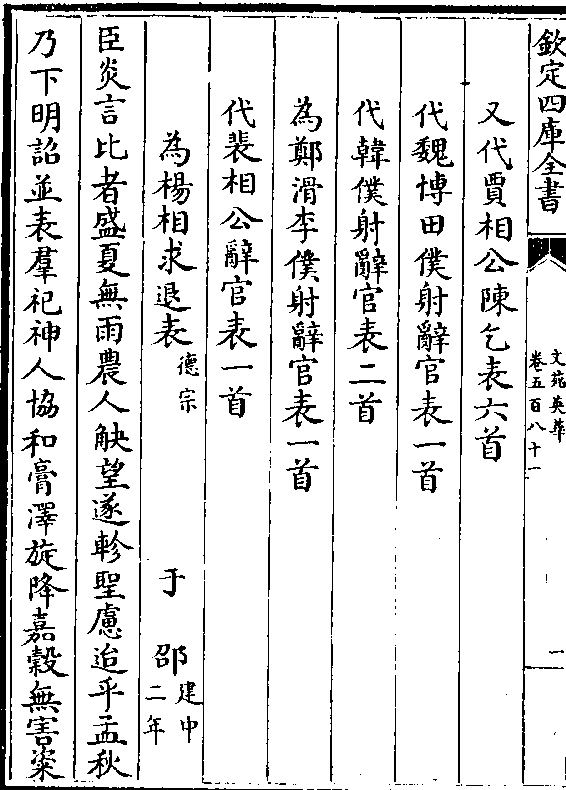 欽定四庫全書
文苑英華
卷五百八十一
二
又代賈相公陳乞表六首
代魏博田僕射辭官表一首
代韓僕射辭官表二首
為鄭滑李僕射辭官表一首
代裴相公辭官表一首
為楊相求退表德宗 于邵建中二年
臣炎言比者盛夏無雨農人觖望遂軫聖慮迨乎孟秋
乃下明詔並表羣祀神人協和膏澤旋降嘉穀無害粢